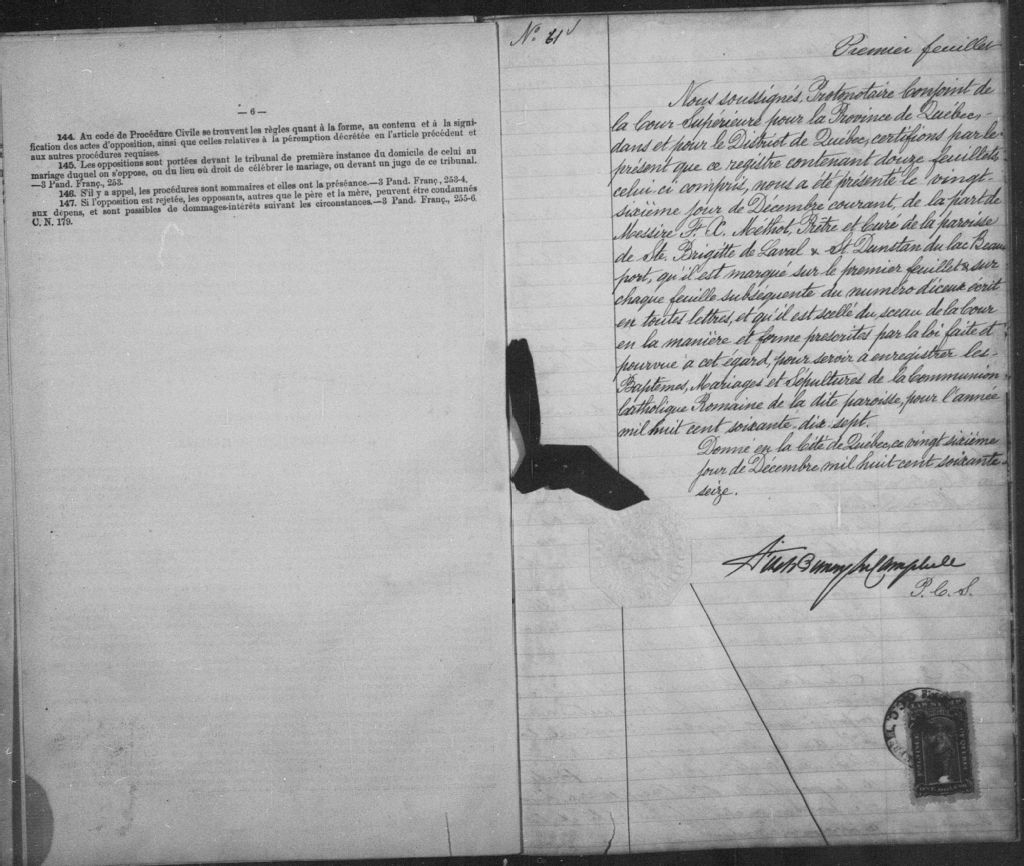 — 6 —
144. Au code de Procédure Civile se trouvent les règles quant à la forme, au contenu et à la signi-
fication des actes d'opposition, ainsi que celles relatives à la péremption décrétée en l'article précédent et
aux autres procédures requises.
145. Les oppositions sont portées devant le tribunal de première instance du domicile de celui au
mariage duquel on s'oppose, ou du lieu où droit de célébrer le mariage, ou devant un juge de ce tribunal.
—3 Pand. Franç., 253.
146. S'il y a appel, les procédures sont sommaires et elles ont la préséance.—3 Pand. Franç., 253-4.
147. Si l'opposition est rejetée, les opposants, autres que le père et la mère, peuvent être condamnés
aux dépens, et sont passibles de dommages-intérêts suivant les circonstances.—3 Pand. Franç., 255-6.
C. N. 179.
No 61
Premier feuillet
Nous soussignés, Protonotaire Conjoint de
la Cour Supérieure pour la Province de Québec,
dans et pour le District de Québec, certifions par le
présent que ce registre contenant douze feuillets
celui-ci compris, nous a été présenté le vingt-
sixième jour de Décembre courant, de la part de
Messire F. X. Méthot, Prêtre et Curé de la paroisse
de Ste. Brigitte de Laval & St Dunstan du lac Beau
port, qu'il est marqué sur le premier feuillet & sur
chaque feuille subséquente du numéro d'iceux écrit
en toutes lettres, et qu'il est scellé du sceau de la Cour
en la manière et forme prescrites par la loi faite et
pourvue à cet égard, pour servir à enregistrer les
Baptêmes, Mariages et Sépultures de la Communion
Catholique Romaine de la dite paroisse, pour l'année
mil huit cent soixante-dix-sept.
Donné en la Cité de Québec, ce vingt sixième
jour de Décembre mil huit cent soixante
seize.
Campbell
P. C. S.
PROVINCE
ONE DOLLAR